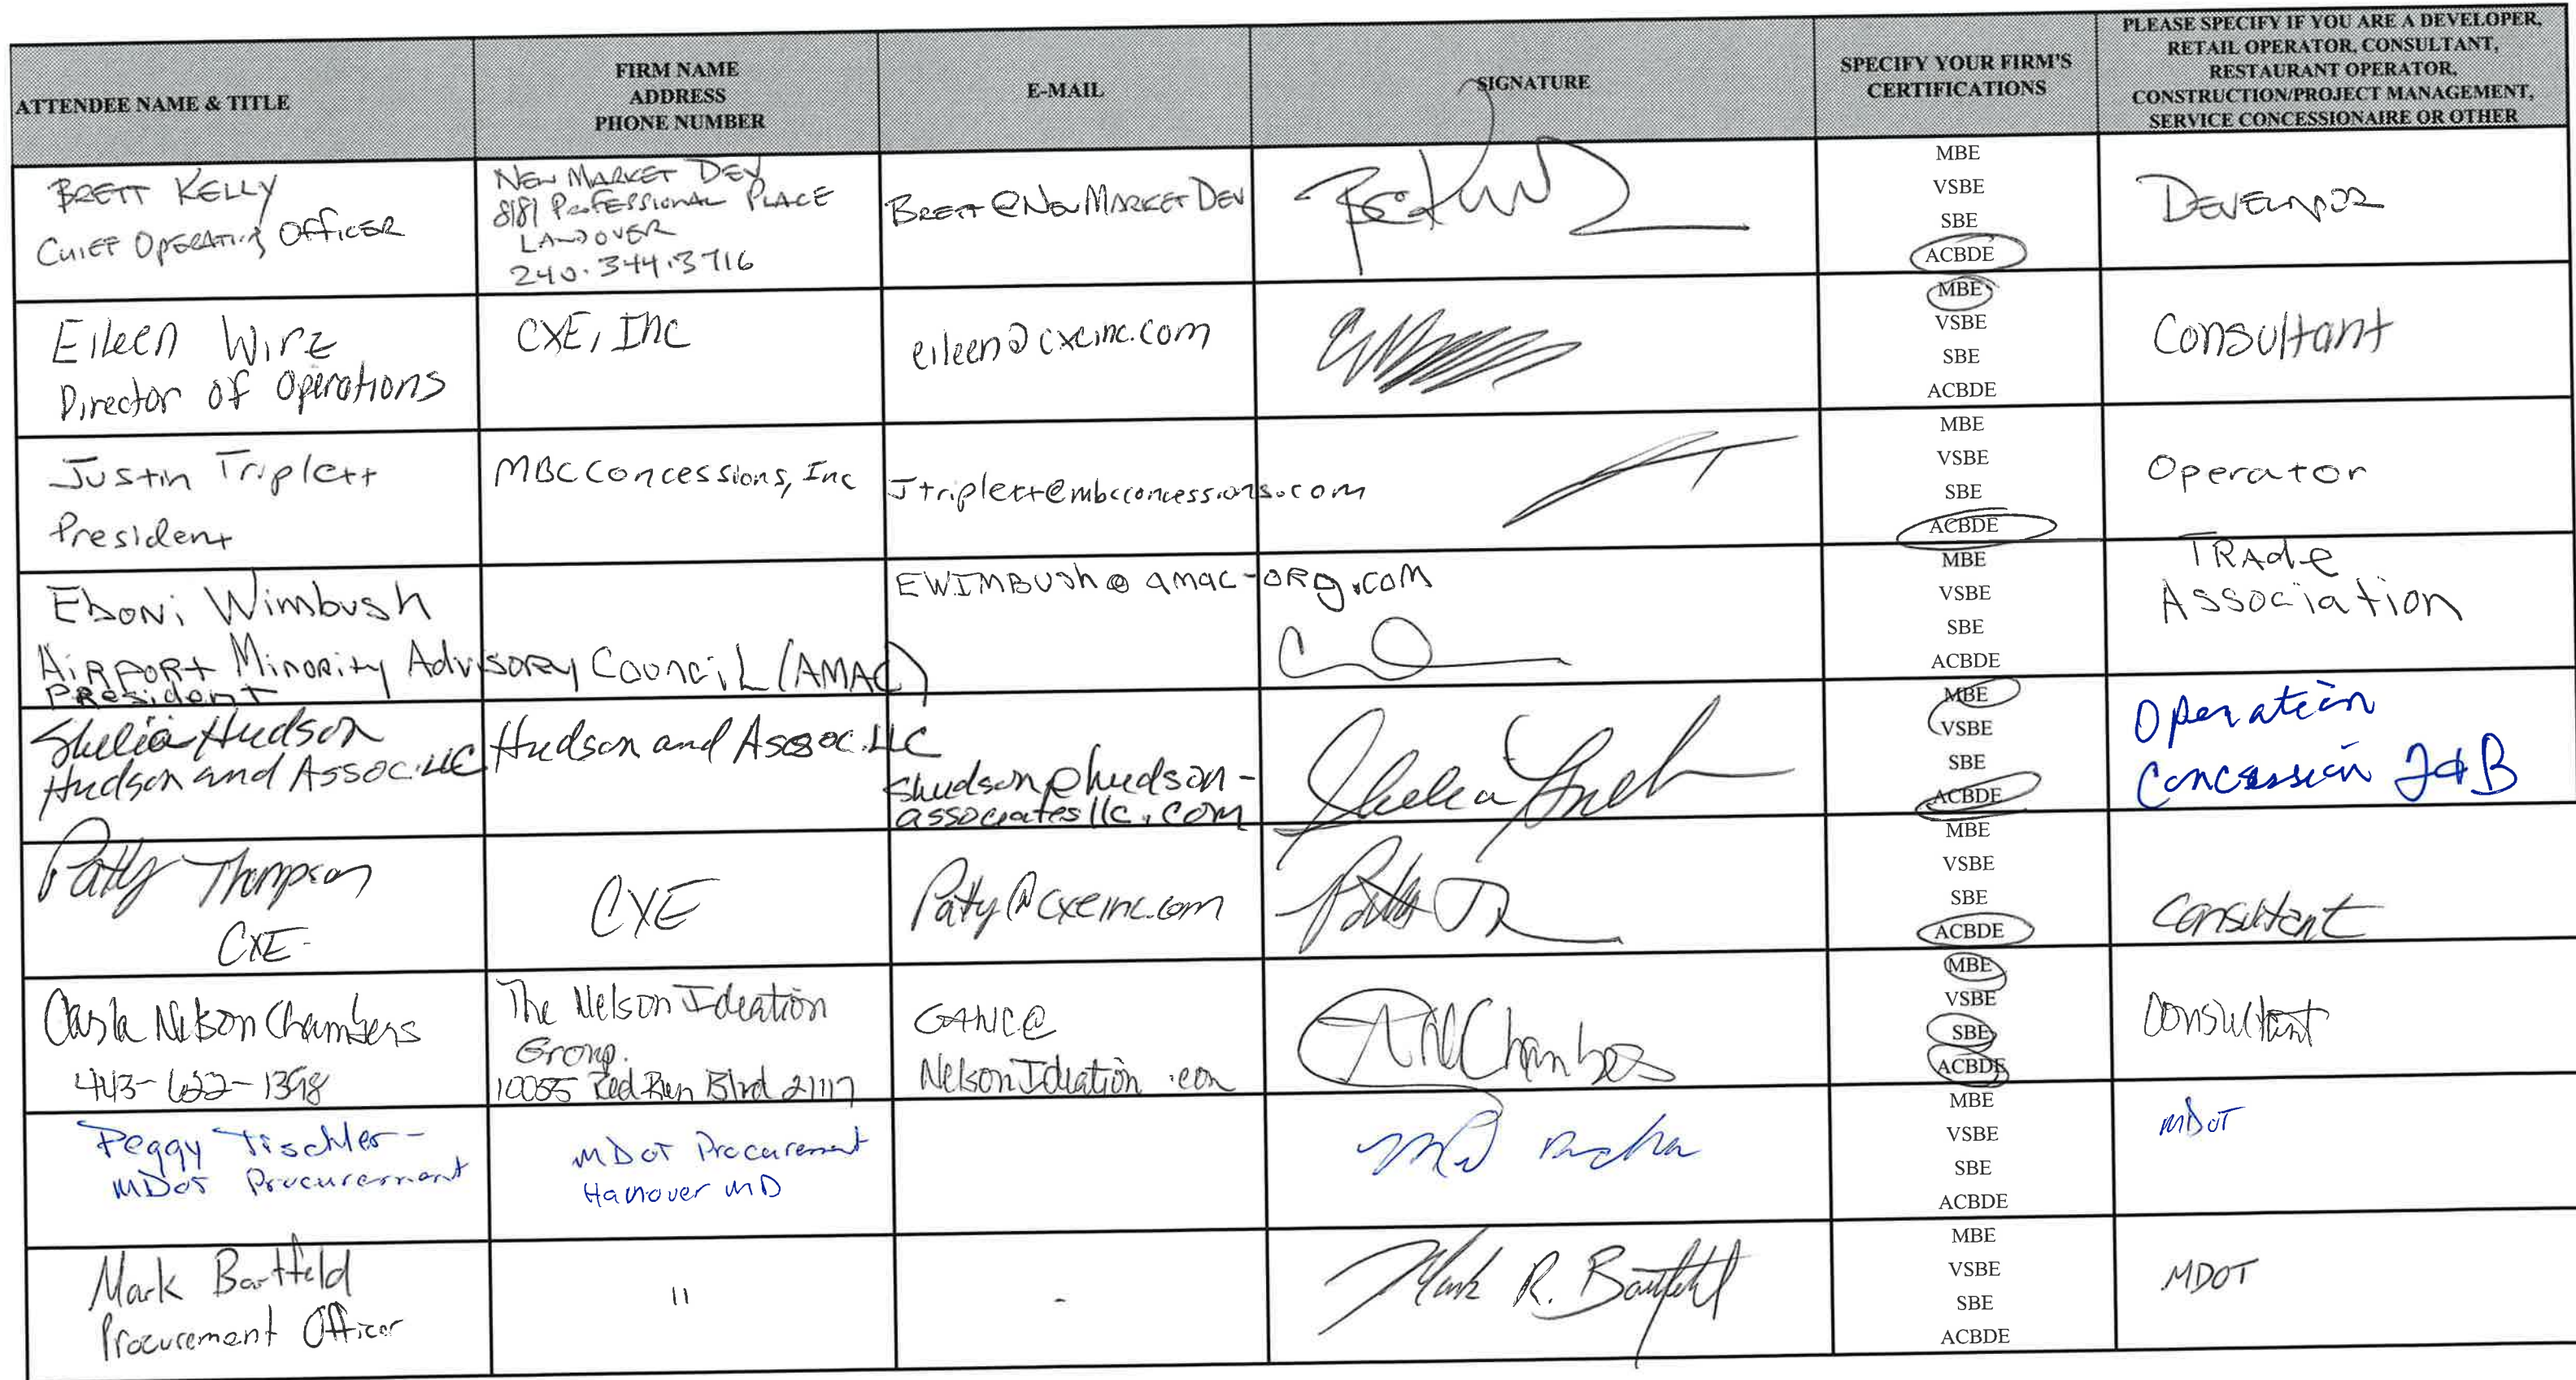 ATTENDEE NAME & TITLE
FIRM NAME
ADDRESS
PHONE NUMBER
E-MAIL
SIGNATURE
SPECIFY YOUR FIRM'S
CERTIFICATIONS
PLEASE SPECIFY IF YOU ARE A DEVELOPER,
RETAIL OPERATOR, CONSULTANT,
RESTAURANT OPERATOR,
CONSTRUCTION/PROJECT MANAGEMENT,
SERVICE CONCESSIONAIRE OR OTHER
BRETT KELLY
CHIEF OPERATING OFFICER
NEW MARKET DEV
8181 PROFESSIONAL PLACE
LANDOVER
240.344.3716
BRETT@NEWMARKETDEV
MBE
VSBE
SBE
ACBDE
DEVELOPOR
Eileen Wirz
Director of Operations
CXE, Inc
eileen@cxeinc.com
MBE
VSBE
SBE
ACBDE
Consultant
Justin Triplett
President
MBC Concessions, Inc
Jtriplett@mbcconcessions.com
MBE
VSBE
SBE
ACBDE
Operator
Eboni Wimbush
AiRPORt MinoRity AdvisoRy CounciL (AMAC)
PResident
EWIMBUSh@amac-oRg.com
MBE
VSBE
SBE
ACBDE
TRAde
Association
Shelia Hudson
Hudson and Assoc. LLC
Hudson and Assoc. LLC
Shudson@hudson-
associatesllc.com
MBE
VSBE
SBE
ACBDE
Operation
Concession F&B
Patty Thompson
CXE
CXE
Patty@cxeinc.com
MBE
VSBE
SBE
ACBDE
Consultant
Nelson Chambers
443-622-1398
The Nelson Ideation
Group.
10055 Red Run Blvd 21117
NelsonIdeation.com
Chambers
MBE
VSBE
SBE
ACBDE
Consultant
Peggy Tischler-
MDOT Procurement
MDOT Procurement
Hanover MD
MBE
VSBE
SBE
ACBDE
MDOT
Mark Bartfeld
Procurement Officer
"
-
Mark R. Bartfeld
MBE
VSBE
SBE
ACBDE
MDOT